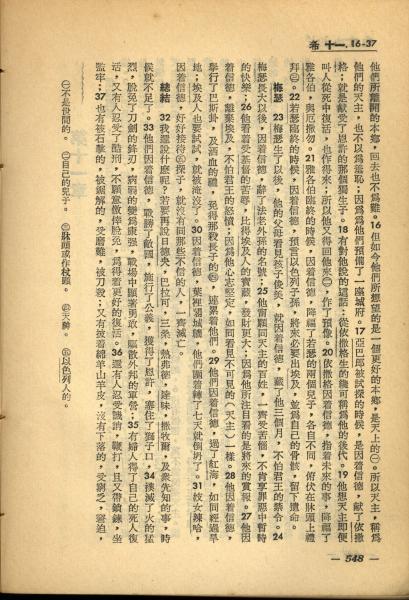 希 十一. 16-37
他們所離開的本鄉，回去也不爲難。16但如今他們所想望的是一個更好的本鄉，是天上的㊀。所以天主，稱爲
他們的天主，也不以爲羞恥；因爲他們預備了一座城府。17亞巴郎被試探的時候，是因着信德，獻了依撒
格；就是獻受了恩許的那個獨生子。18有對他說的這話：從依撒格生的纔可稱爲他的後代。19他想天主卽便
叫人從死中復活，也作得來；所以他又得回他來㊁，作了預像。20依撒格因着信德，指着未來的事，降福了
雅各伯，與厄撒勿。21雅各伯臨終的時候，因着信德，降福了若瑟的兩個兒子，各自不同，俯伏在牀頭上禮
拜㊂。22若瑟臨終的時候，因着信德，預言以色列子孫，將來必要出埃及，並爲自己的骨骸，留下遺命。
梅瑟 23梅瑟生了以後，他的父母看見孩子俊美，就因着信德，藏了他三個月，不怕君王的禁令。24
梅瑟長大以後，因着信德，辭了法老外孫的名號；25他甯願同天主的百姓，一齊受苦惱，不肯享罪惡中暫時
的快樂；26他看着受基督的苦辱，比得埃及人的寶藏，發財更大；因爲他所注目看的是將來的賞報。27他因
着信德，離棄埃及，不怕君王的怒憤；因爲他心志堅定，如同看見不可見的（天主）一樣。28他因着信德，
舉行了巴斯卦，及洒血的禮，免得那殺長子的㊃，連累着他們。29他們因着信德，過了紅海，如同經過旱
地；埃及人也要試試，就被淹沒了。30因着信德，葉裡閣城牆，他們圍着轉了七天就倒坍了。31妓女辣哈，
因着信德，好好接待㊄探子，就沒有同那些不信的人，一齊滅亡。
總結 32我還說什麼呢？若要再說日德安，巴拉阿，三桑，熱弗德，達味，撒慕爾，及衆先知的事，時
候就不足了。33他們因着信德，戰勝了敵國，施行了公義，獲得了恩許，塞住了獅子口，34撲滅了火的猛
烈，脫免了刀劍的鋒刃，病弱的變爲康强，戰場中顯著勇敢，驅散外邦的軍營；35有婦人得了自己的死人復
活，又有人忍受了酷刑，不願意僥倖脫免，爲得着更好的復活。36還有人忍受譏誚，鞭打，且又帶鎖鍊，坐
監牢；37也有被石擊的，被鋸解的，受磨難，被刀殺；又有披着綿羊山羊皮，沒有下落的，受窮乏，窘迫，
㊀不是世間的。 ㊁自己的兒子。 ㊂牀頭或作杖頭。 ㊃天神。 ㊄以色列人的。
— 548 —